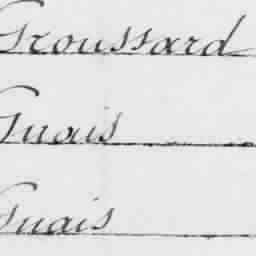 Groussard
Guais
Guais